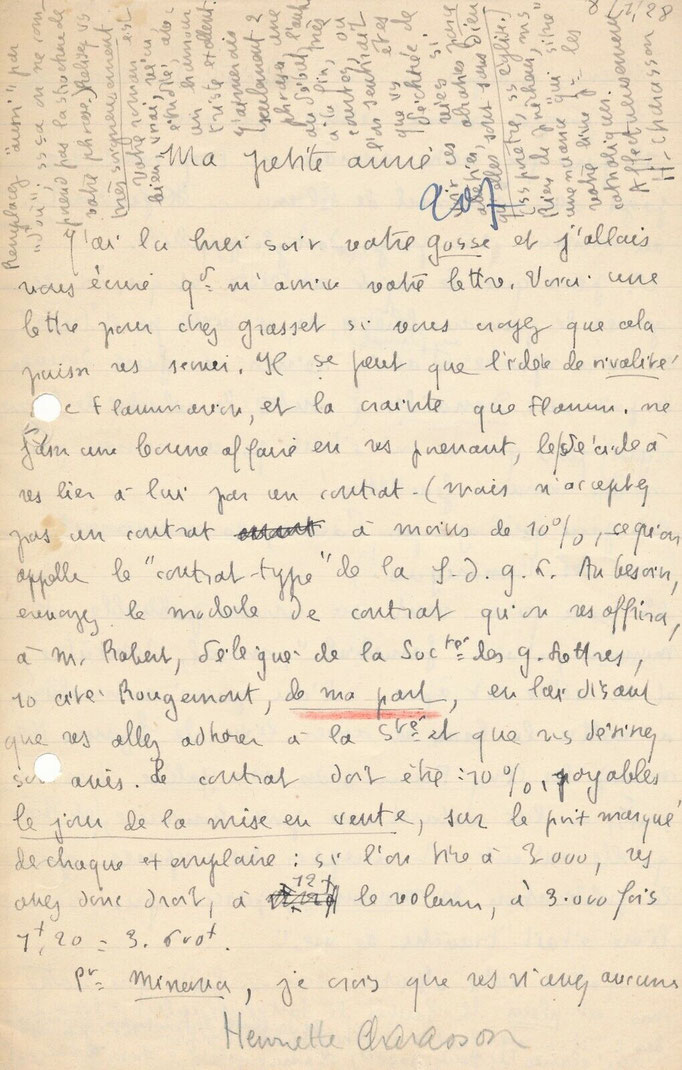 8/1/28
Ma petite amie
J'ai lu hier soir votre gosse et j'allais
vous écrire qd m'arrive votre lettre. Voici une
lettre pour chez Grasset si vous croyez que cela
puisse vs servir. Il se peut que l'idée de rivalité
c Flammarion, et la crainte que Flamm. ne
fasse une bonne affaire en vs prenant, le décide à
vs lier à lui par un contrat. (Mais n'acceptez
pas un contrat à moins de 10%, ce qu'on
appelle le "contrat-type" de la S. d. g. L. Au besoin,
envoyez le modèle de contrat qu'on vs offrira,
à M. Robert, délégué de la Socté des g. Lettres,
10 cité Rougemont, de ma part, en lui disant
que vs allez adhérer à la Sté et que vs désirez
son avis. Le contrat doit être : 10%, payables
le jour de la mise en vente, sur le prix marqué
de chaque exemplaire : si l'on tire à 3000, vs
avez donc droit, à 12f le volume, à 3.000 fois
1f,20 = 3.600f.
Pr Minerva, je crois que vs n'avez aucune
Henriette Charasson
Remplacez "aussi" par
"où"; ss ça on ne com-
prend pas la structure de
votre phrase. Relisez vs
très soigneusement.
Votre roman est
bien, vrai, bien
étudié, avec
un humour
triste excellent.
J'aimerais
seulement 2
phrases, une
au début, l'autre
à la fin, très
courtes, où
l'on sentirait
que vs êtes
si
ces
elles sont sans Dieu
ss prêtre, ss église.
Rien de prêcheur, mais
une nuance qui "signe"
votre livre pr les
catholiques.
Affectueusement
H. Charasson